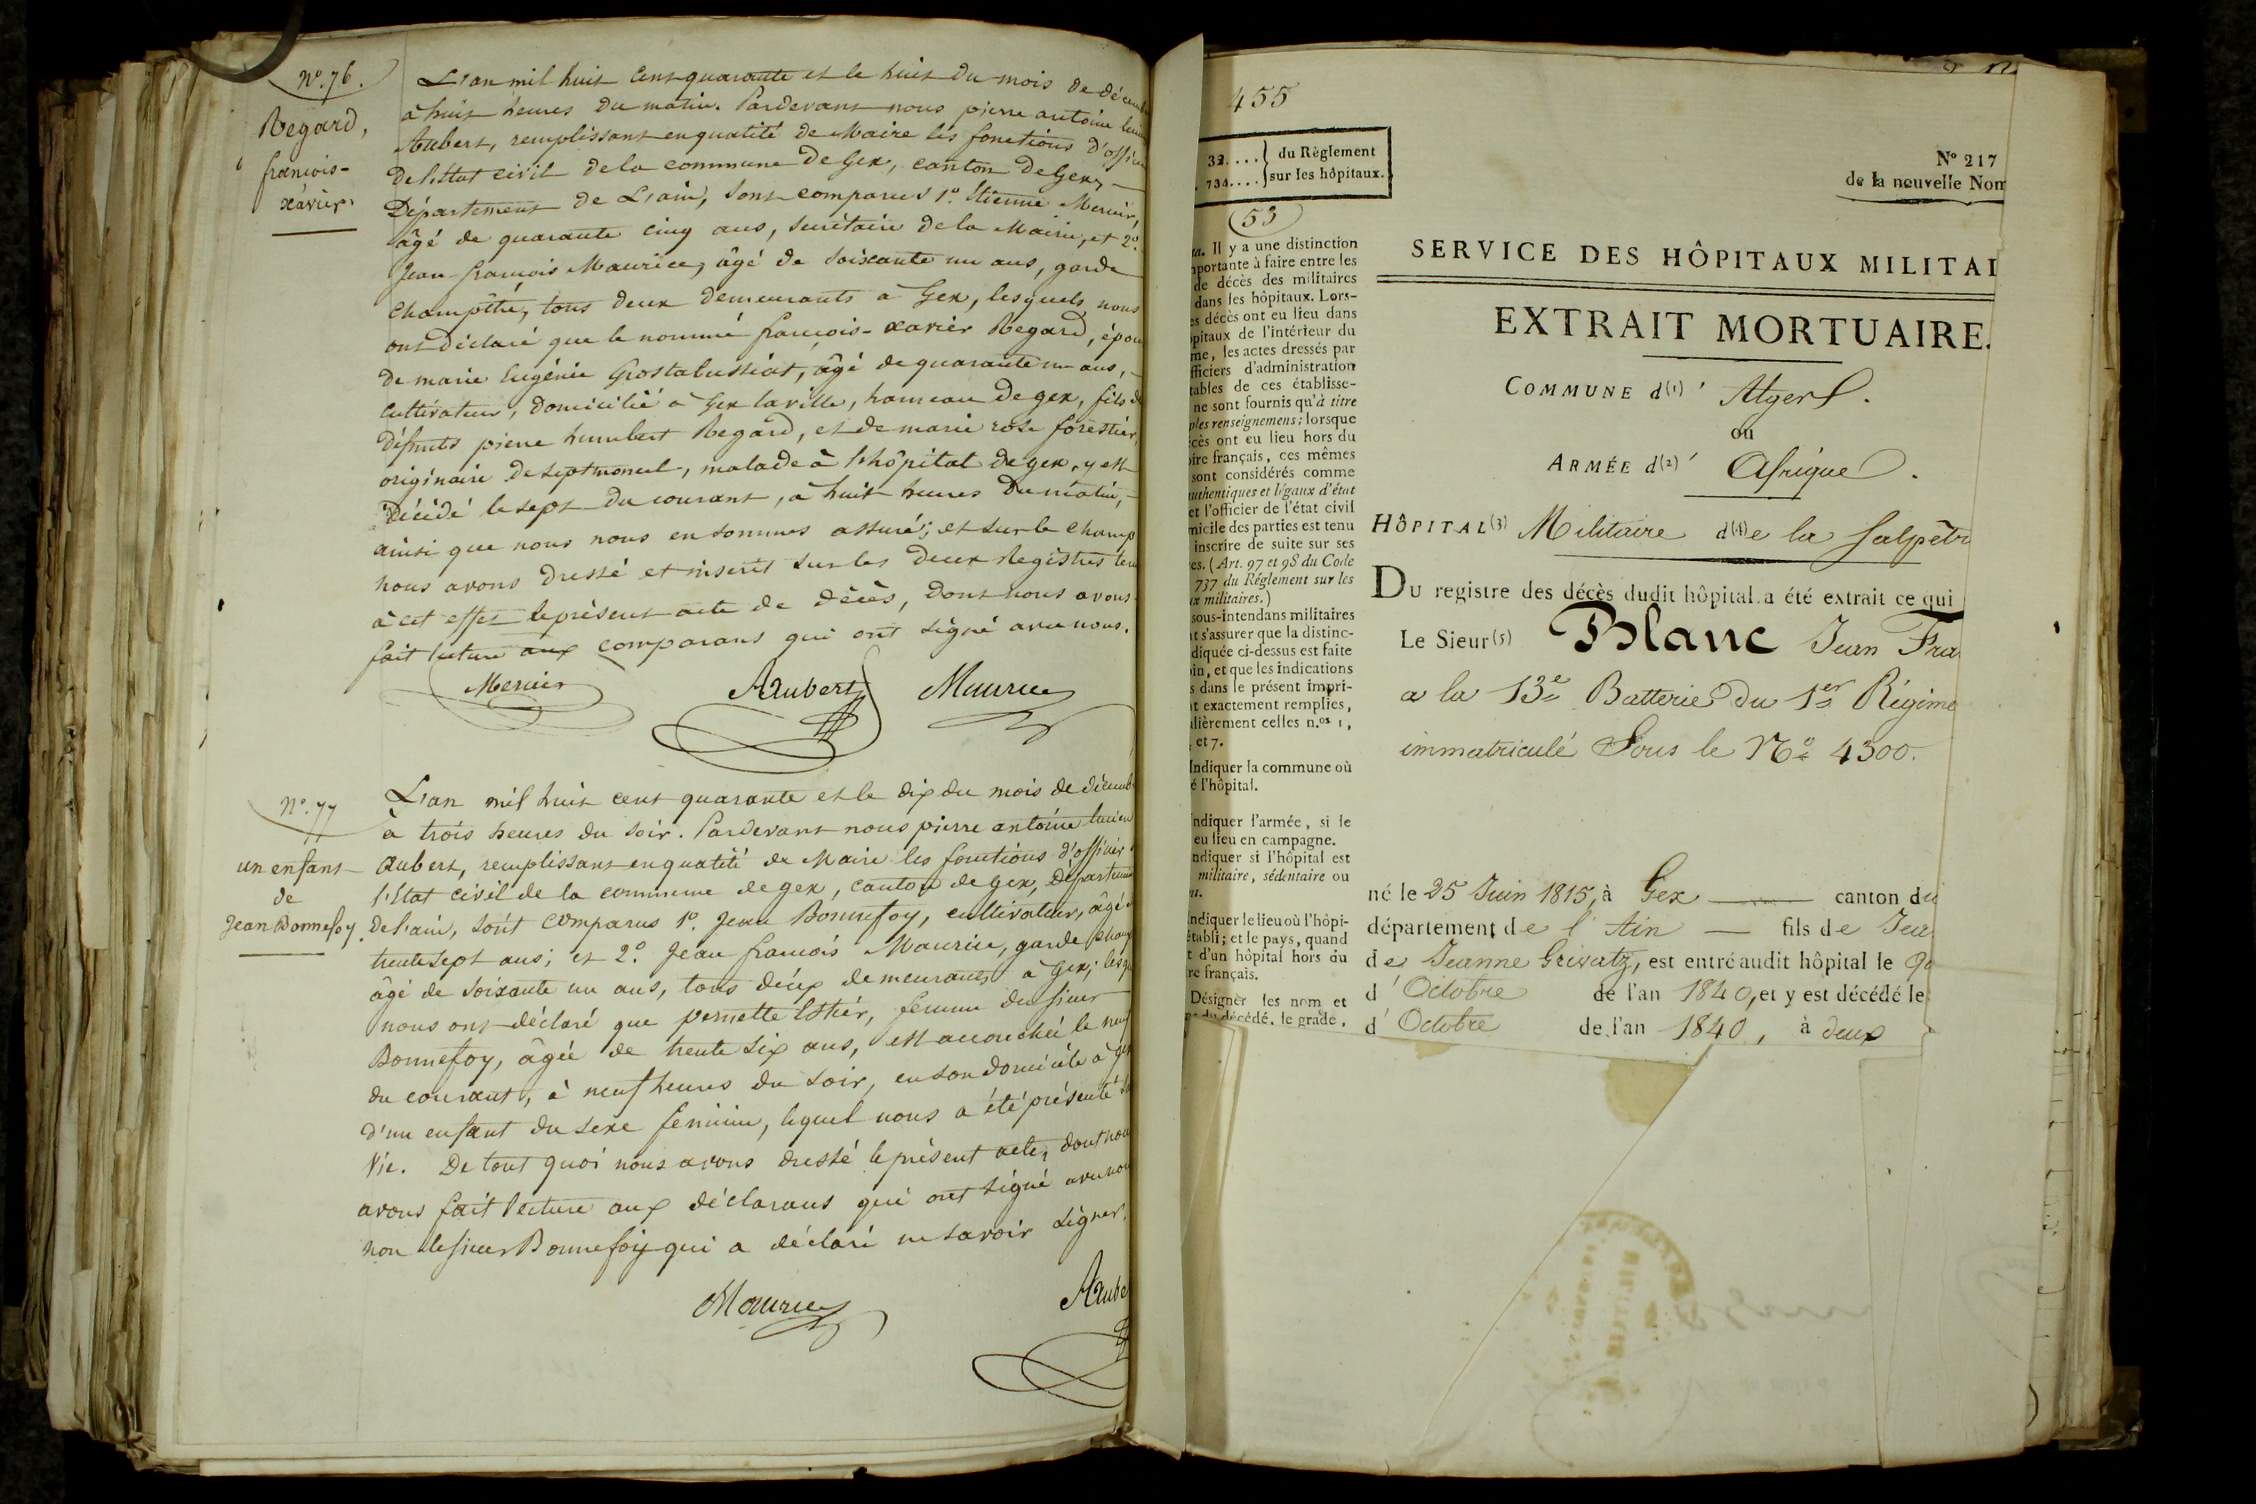 N.o 76.
Regard,
françois-
xavier
L'an mil huit cent quarante et le huit du mois de décemb
à huit heures du matin. Pardevant nous pierre antoine
Aubert, remplissant en qualité de Maire les fonctions d'offici
de l'état civil de la commune de Gex, canton de Gex,
Département de L'ain, sont comparus 1.o Etienne Mercier,
âgé de quarante cinq ans, secrétaire de la Mairie, et 2.o
Jean-françois Maurice, âgé de soixante un ans, garde
champêtre, tous deux demeurants à Gex, lesquels nous
ont déclaré que le nommé françois-xavier Regard, épou
de marie Eugénie Grostabussiat, âgé de quarante un ans,
cultivateur, domicilié à Gex la ville, hameau de gex, fils de
défunts pierre humbert Regard, et de marie rose forestier,
originaire de septmoncel, malade à l'hôpital de gex, y est
décédé le sept du courant, à huit heures du matin,
ainsi que nous nous en sommes assuré; et sur le champ
nous avons dressé et inscrit sur les deux Registres ten
à cet effet le présent acte de décès, dont nous avons
fait lecture aux comparans qui ont signé avec nous.
Mercier Aubert Maurice
N.o 77
un enfant
de
Jean Bonnefoy.
L'an mil huit cent quarante et le dix du mois de décemb
à trois heures du soir. Pardevant nous pierre antoine lucien
Aubert, remplissant en qualité de Maire les fonctions d'officier
l'Etat civil de la commune de gex, canton de gex, départem
de l'ain, sont comparus 1.o Jean Bonnefoy, cultivateur, âgé
trente sept ans; et 2.o Jean françois Maurice, garde champ
âgé de soixante un ans, tous deux demeurants à Gex; lesq
nous ont déclaré que pernette Estier, femme du sieur
Bonnefoy, âgée de trente six ans, est accouchée le neuf
du courant, à neuf heures du soir, en son domicile à gex
d'un enfant du sexe féminin, lequel nous a été présenté
Vie. De tout quoi nous avons dressé le présent acte, dont nou
avons fait lecture aux déclarans qui ont signé avec nou
non le sieur Bonnefoy qui a déclaré ne savoir signer.
Maurice Aube
455
32.... du Règlement
734.... sur les hôpitaux.
53
ta. Il y a une distinction
portante à faire entre les
de décès des militaires
dans les hôpitaux. Lors-
es décès ont eu lieu dans
pitaux de l'intérieur du
me, les actes dressés par
fficiers d'administration
tables de ces établisse-
ne sont fournis qu'à titre
ples renseignemens; lorsque
cès ont eu lieu hors du
ire français, ces mêmes
sont considérés comme
uthentiques et légaux d'état
et l'officier de l'état civil
micile des parties est tenu
inscrire de suite sur ses
es. (Art. 97 et 98 du Code
737 du Règlement sur les
ux militaires.)
sous-intendans militaires
nt s'assurer que la distinc-
diquée ci-dessus est faite
in, et que les indications
s dans le présent impri-
nt exactement remplies,
lièrement celles n.os 1,
, et 7.
Indiquer la commune où
é l'hôpital.
ndiquer l'armée, si le
eu lieu en campagne.
ndiquer si l'hôpital est
militaire, sédentaire ou
nt.
ndiquer le lieu où l'hôpi-
établi; et le pays, quand
t d'un hôpital hors du
re français.
Désigner les nom et
du décédé, le grade,
N° 217
de la nouvelle Nom
SERVICE DES HÔPITAUX MILITAI
EXTRAIT MORTUAIRE.
COMMUNE d(1)' Alger.
ou
ARMÉE d(2)' Afrique.
HÔPITAL(3) Militaire d(4)e la Salpêtr
Du registre des décès dudit hôpital a été extrait ce qui
Le Sieur(5) Blanc Jean Fra
a la 13e Batterie du 1er Régime
immatriculé Sous le No 4300.
né le 25 Juin 1815, à Gex canton de
département de l'Ain fils de Jea
de Jeanne Grivatz, est entré audit hôpital le
d'Octobre de l'an 1840, et y est décédé le
d'Octobre de l'an 1840, à deux